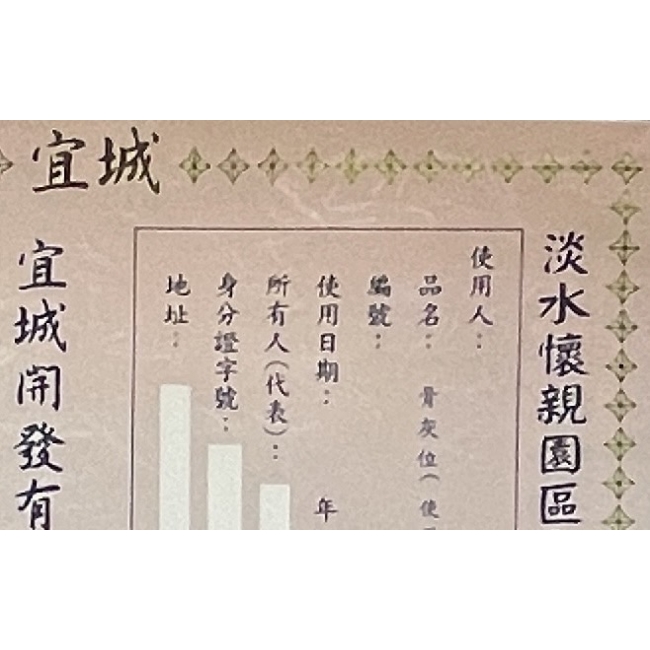 宜城
淡水懷親園區
使用人：
品名： 骨灰位（使
編號：
使用日期： 年
所有人（代表）：
身分證字號：
地址：
宜城開發有